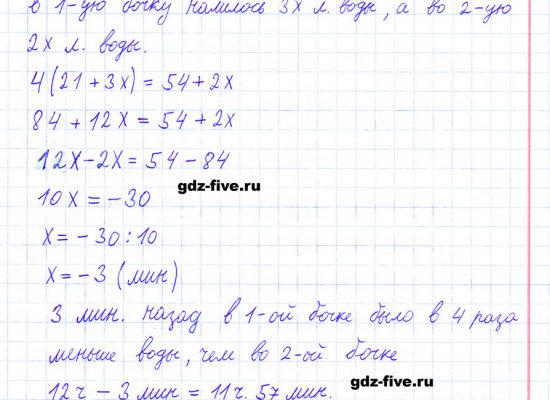 в 1-ую бочку налилось 3x л. воды, а во 2-ую
2x л. воды.
4(21+3x) = 54+2x
84 + 12x = 54 + 2x
12x-2x = 54 - 84
gdz-five.ru
10x = -30
x = -30:10
x = -3 (мин)
3 мин. назад в 1-ой бочке было в 4 раза
меньше воды, чем во 2-ой бочке
gdz-five.ru
12ч - 3 мин = 11ч. 57 мин.